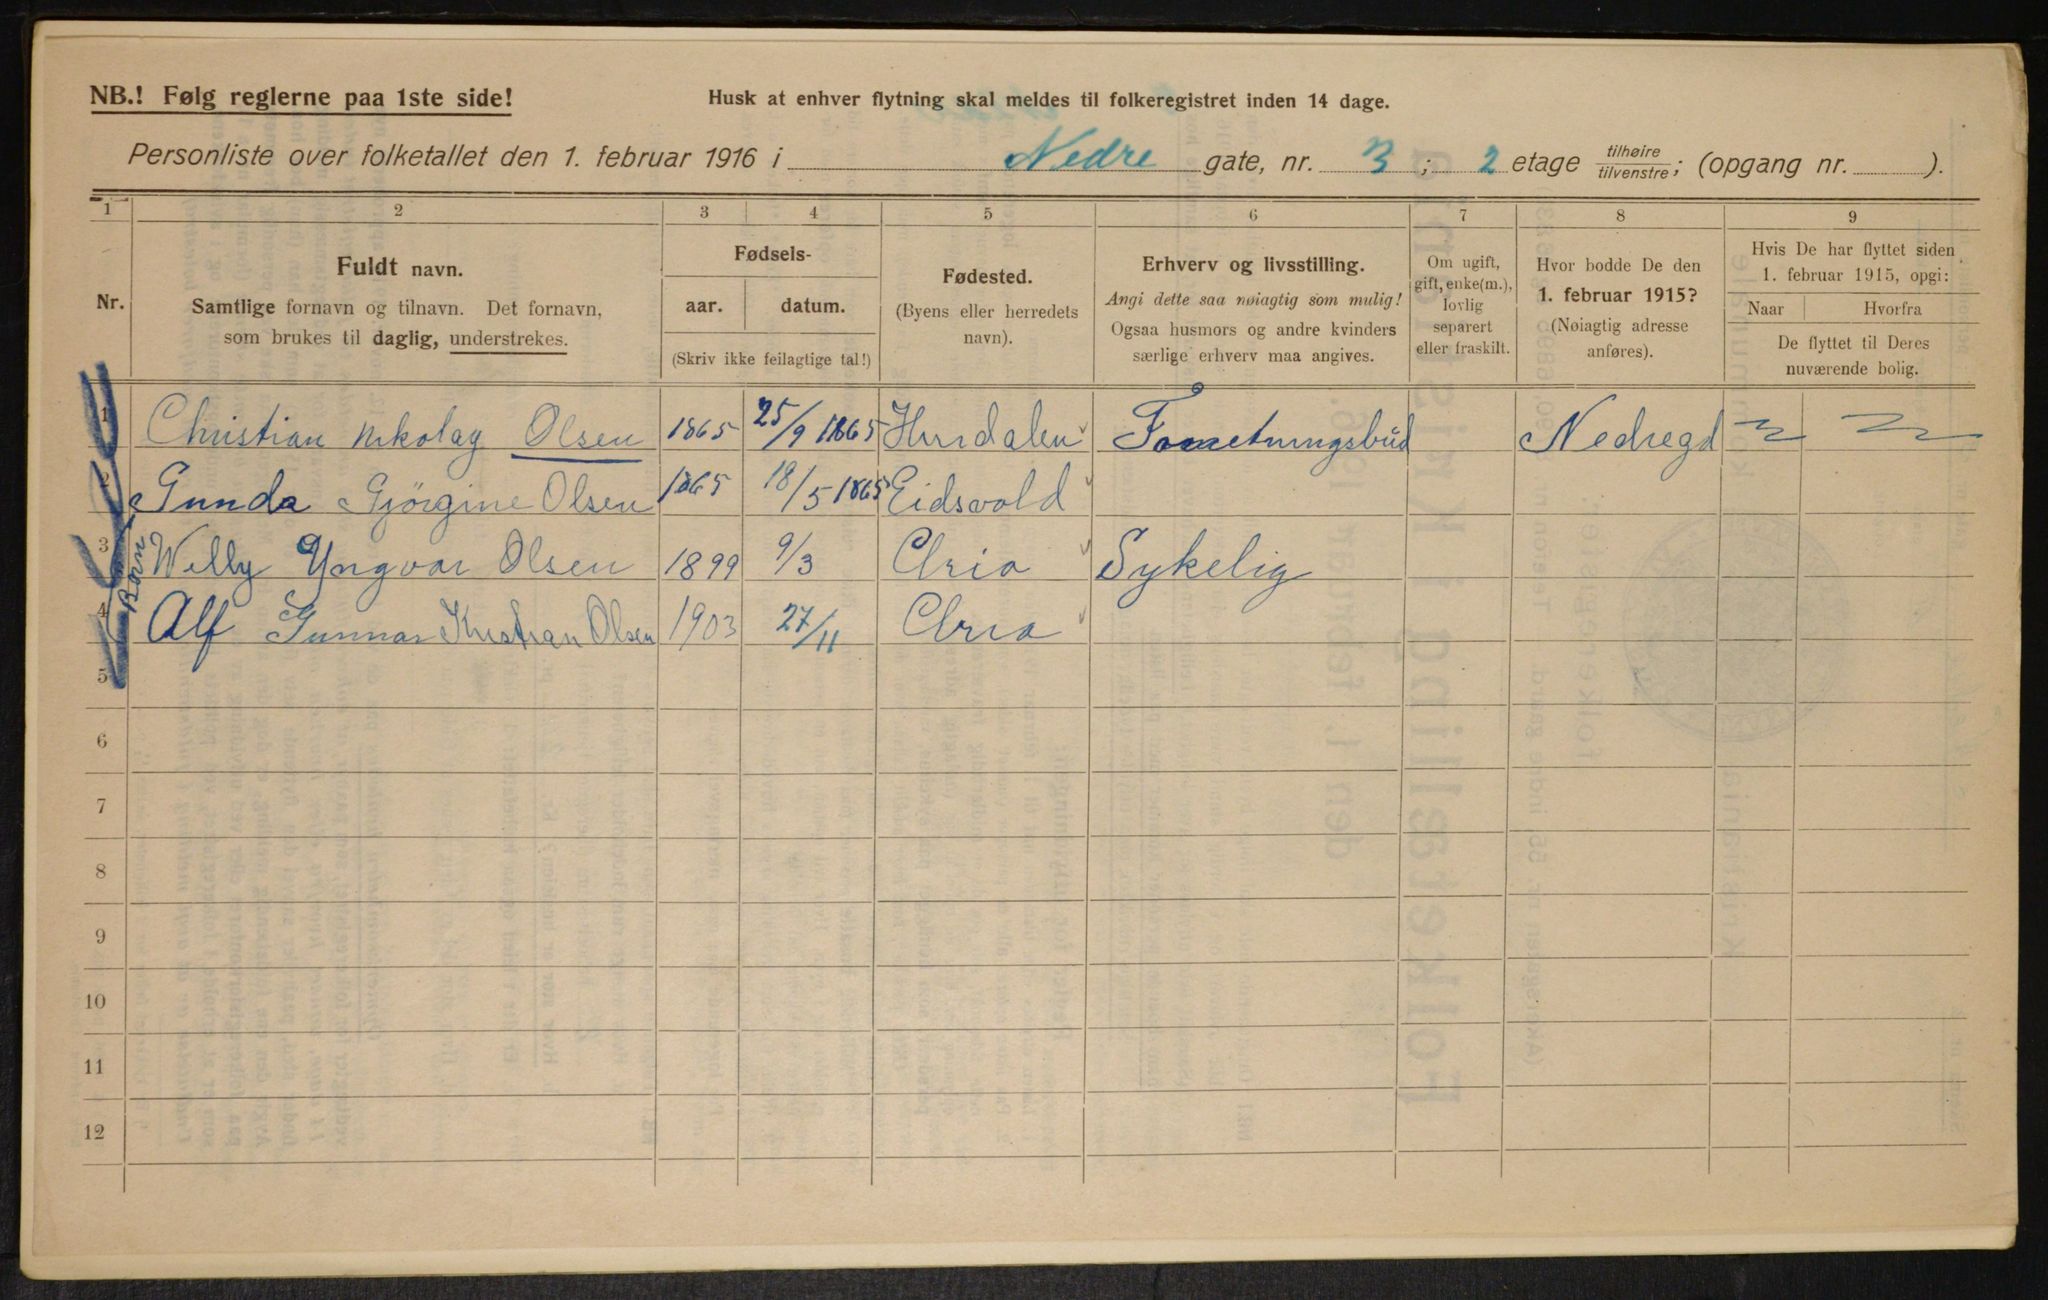 NB.! Følg reglerne paa 1ste side!
Husk at enhver flytning skal meldes til folkeregistret inden 14 dage.
Personliste over folketallet den 1. februar 1916 i Nedre gate, nr. 3; 2 etage tilhøire/tilvenstre; (opgang nr. ).
1 2 3 4 5 6 7 8 9
Nr.
Fuldt navn.
Samtlige fornavn og tilnavn. Det fornavn,
som brukes til daglig, understrekes.
Fødsels-
aar. datum.
(Skriv ikke feilagtige tal!)
Fødested.
(Byens eller herredets
navn).
Erhverv og livsstilling.
Angi dette saa nøiagtig som mulig!
Ogsaa husmors og andre kvinders
særlige erhverv maa angives.
Om ugift,
gift, enke(m.),
lovlig
separert
eller fraskilt.
Hvor bodde De den
1. februar 1915?
(Nøiagtig adresse
anføres).
Hvis De har flyttet siden
1. februar 1915, opgi:
Naar Hvorfra
De flyttet til Deres
nuværende bolig.
1 Christian Nikolay Olsen 1865 25/9 1865 Hurdalen Forretningsbud Nedregd
2 Gunda Gjörgine Olsen 1865 18/5 1865 Eidsvold
Børn
3 Willy Yngvar Olsen 1899 9/3 Chria Sykelig
4 Alf Gunnar Kristian Olsen 1903 27/11 Chria
5
6
7
8
9
10
11
12